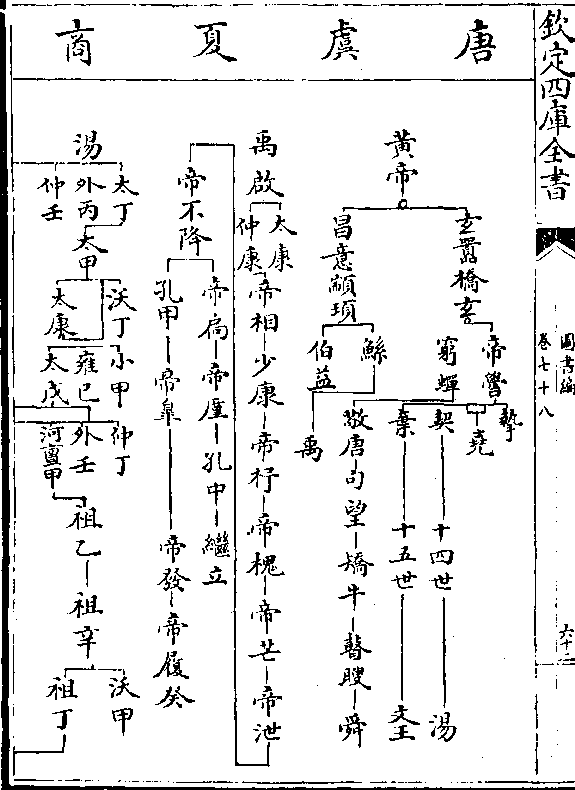 欽定四庫全書
圖書編
卷七十八
六十二
唐
虞
夏
商
黃帝
玄囂橋玄
帝嚳
摯
堯
契
十四世
湯
棄
十五世
文王
窮蟬
敬唐句望
矯牛
瞽瞍
舜
昌意顓頊
鯀
禹
伯益
禹啟
太康
仲康
帝相
少康
帝杼
帝槐
帝芒
帝泄
帝不降
帝扃
帝廑
孔甲
繼立
孔甲
帝皐
帝發
帝履癸
湯
太丁
外丙
仲壬
太甲
沃丁
太康
小甲
雍己
太戊
仲丁
外壬
河亶甲
祖乙
祖辛
沃甲
祖丁